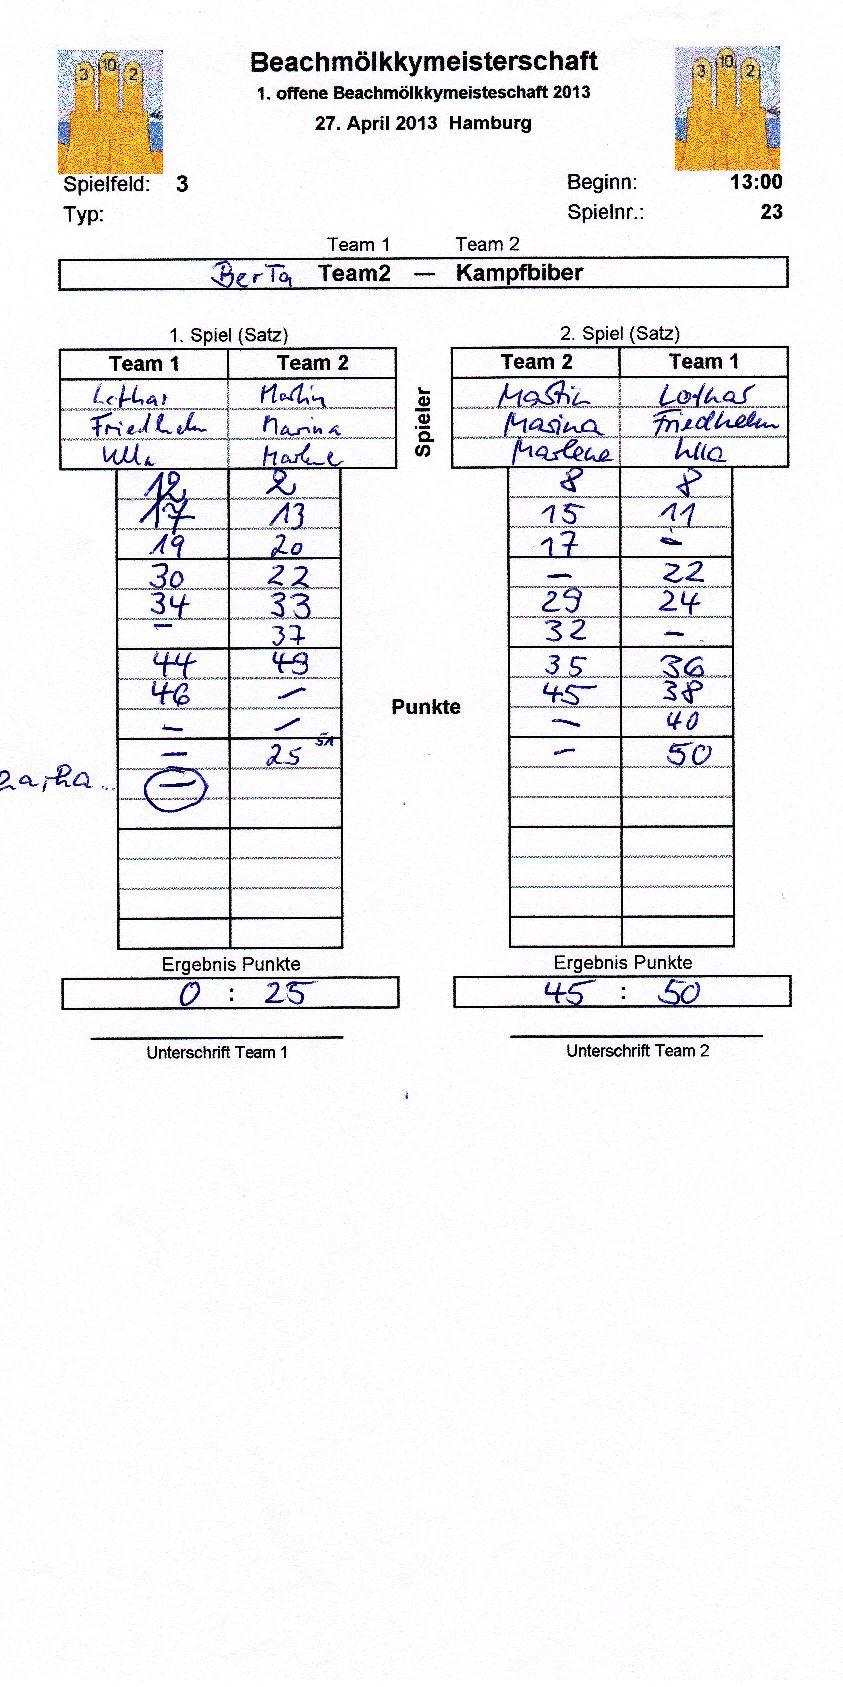 Beachmölkkymeisterschaft
1. offene Beachmölkkymeisteschaft 2013
27. April 2013 Hamburg
3 10 2
3 10 2
Spielfeld: 3 Beginn: 13:00
Typ: Spielnr.: 23
Team 1 Team 2
BerTa Team2 — Kampfbiber
1. Spiel (Satz) 2. Spiel (Satz)
Team 1 Team 2 Team 2 Team 1
Spieler
Lothar Martin Martin Lothar
Friedhelm Marina Marina Friedhelm
Ulla Marlene Marlene Ulla
12 2 8 8
17 13 15 11
19 20 17 -
30 22 – 22
34 33 29 24
– 37 32 –
44 49 35 36
46 – 45 38
Punkte
– – – 40
– 25 51 – 50
–
Ergebnis Punkte Ergebnis Punkte
0 : 25 45 : 50
Unterschrift Team 1 Unterschrift Team 2